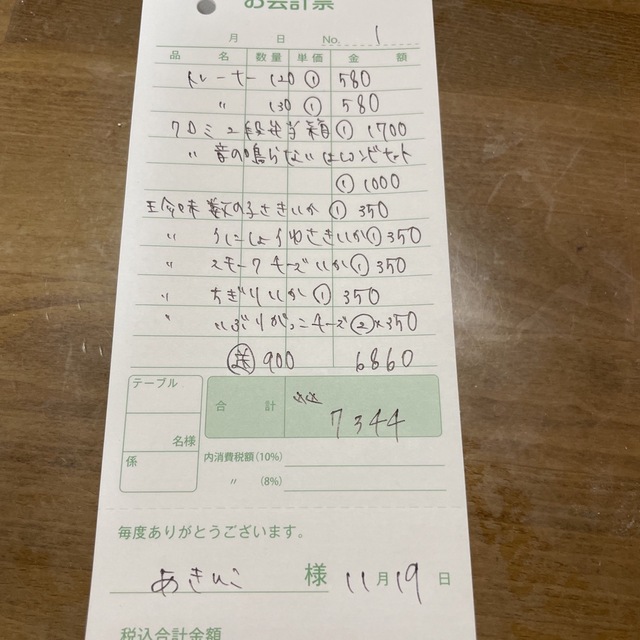 お会計票
月 日 No. 1
品 名 数量 単価 金 額
トレーナー 120 ① 580
〃 130 ① 580
クロミ2段弁当箱 ① 1700
〃 音の鳴らないはしコンビセット
① 1000
珍味 数の子さきいか ① 350
〃 うにしょうゆさきいか ① 350
〃 スモークチーズいか ① 350
〃 ちぎりいか ① 350
〃 いぶりがっこチーズ ②×350
送 900 6860
テーブル
名様
係
合 計 7344
内消費税額(10%)
〃 (8%)
毎度ありがとうございます。
様 11月19日
税込合計金額